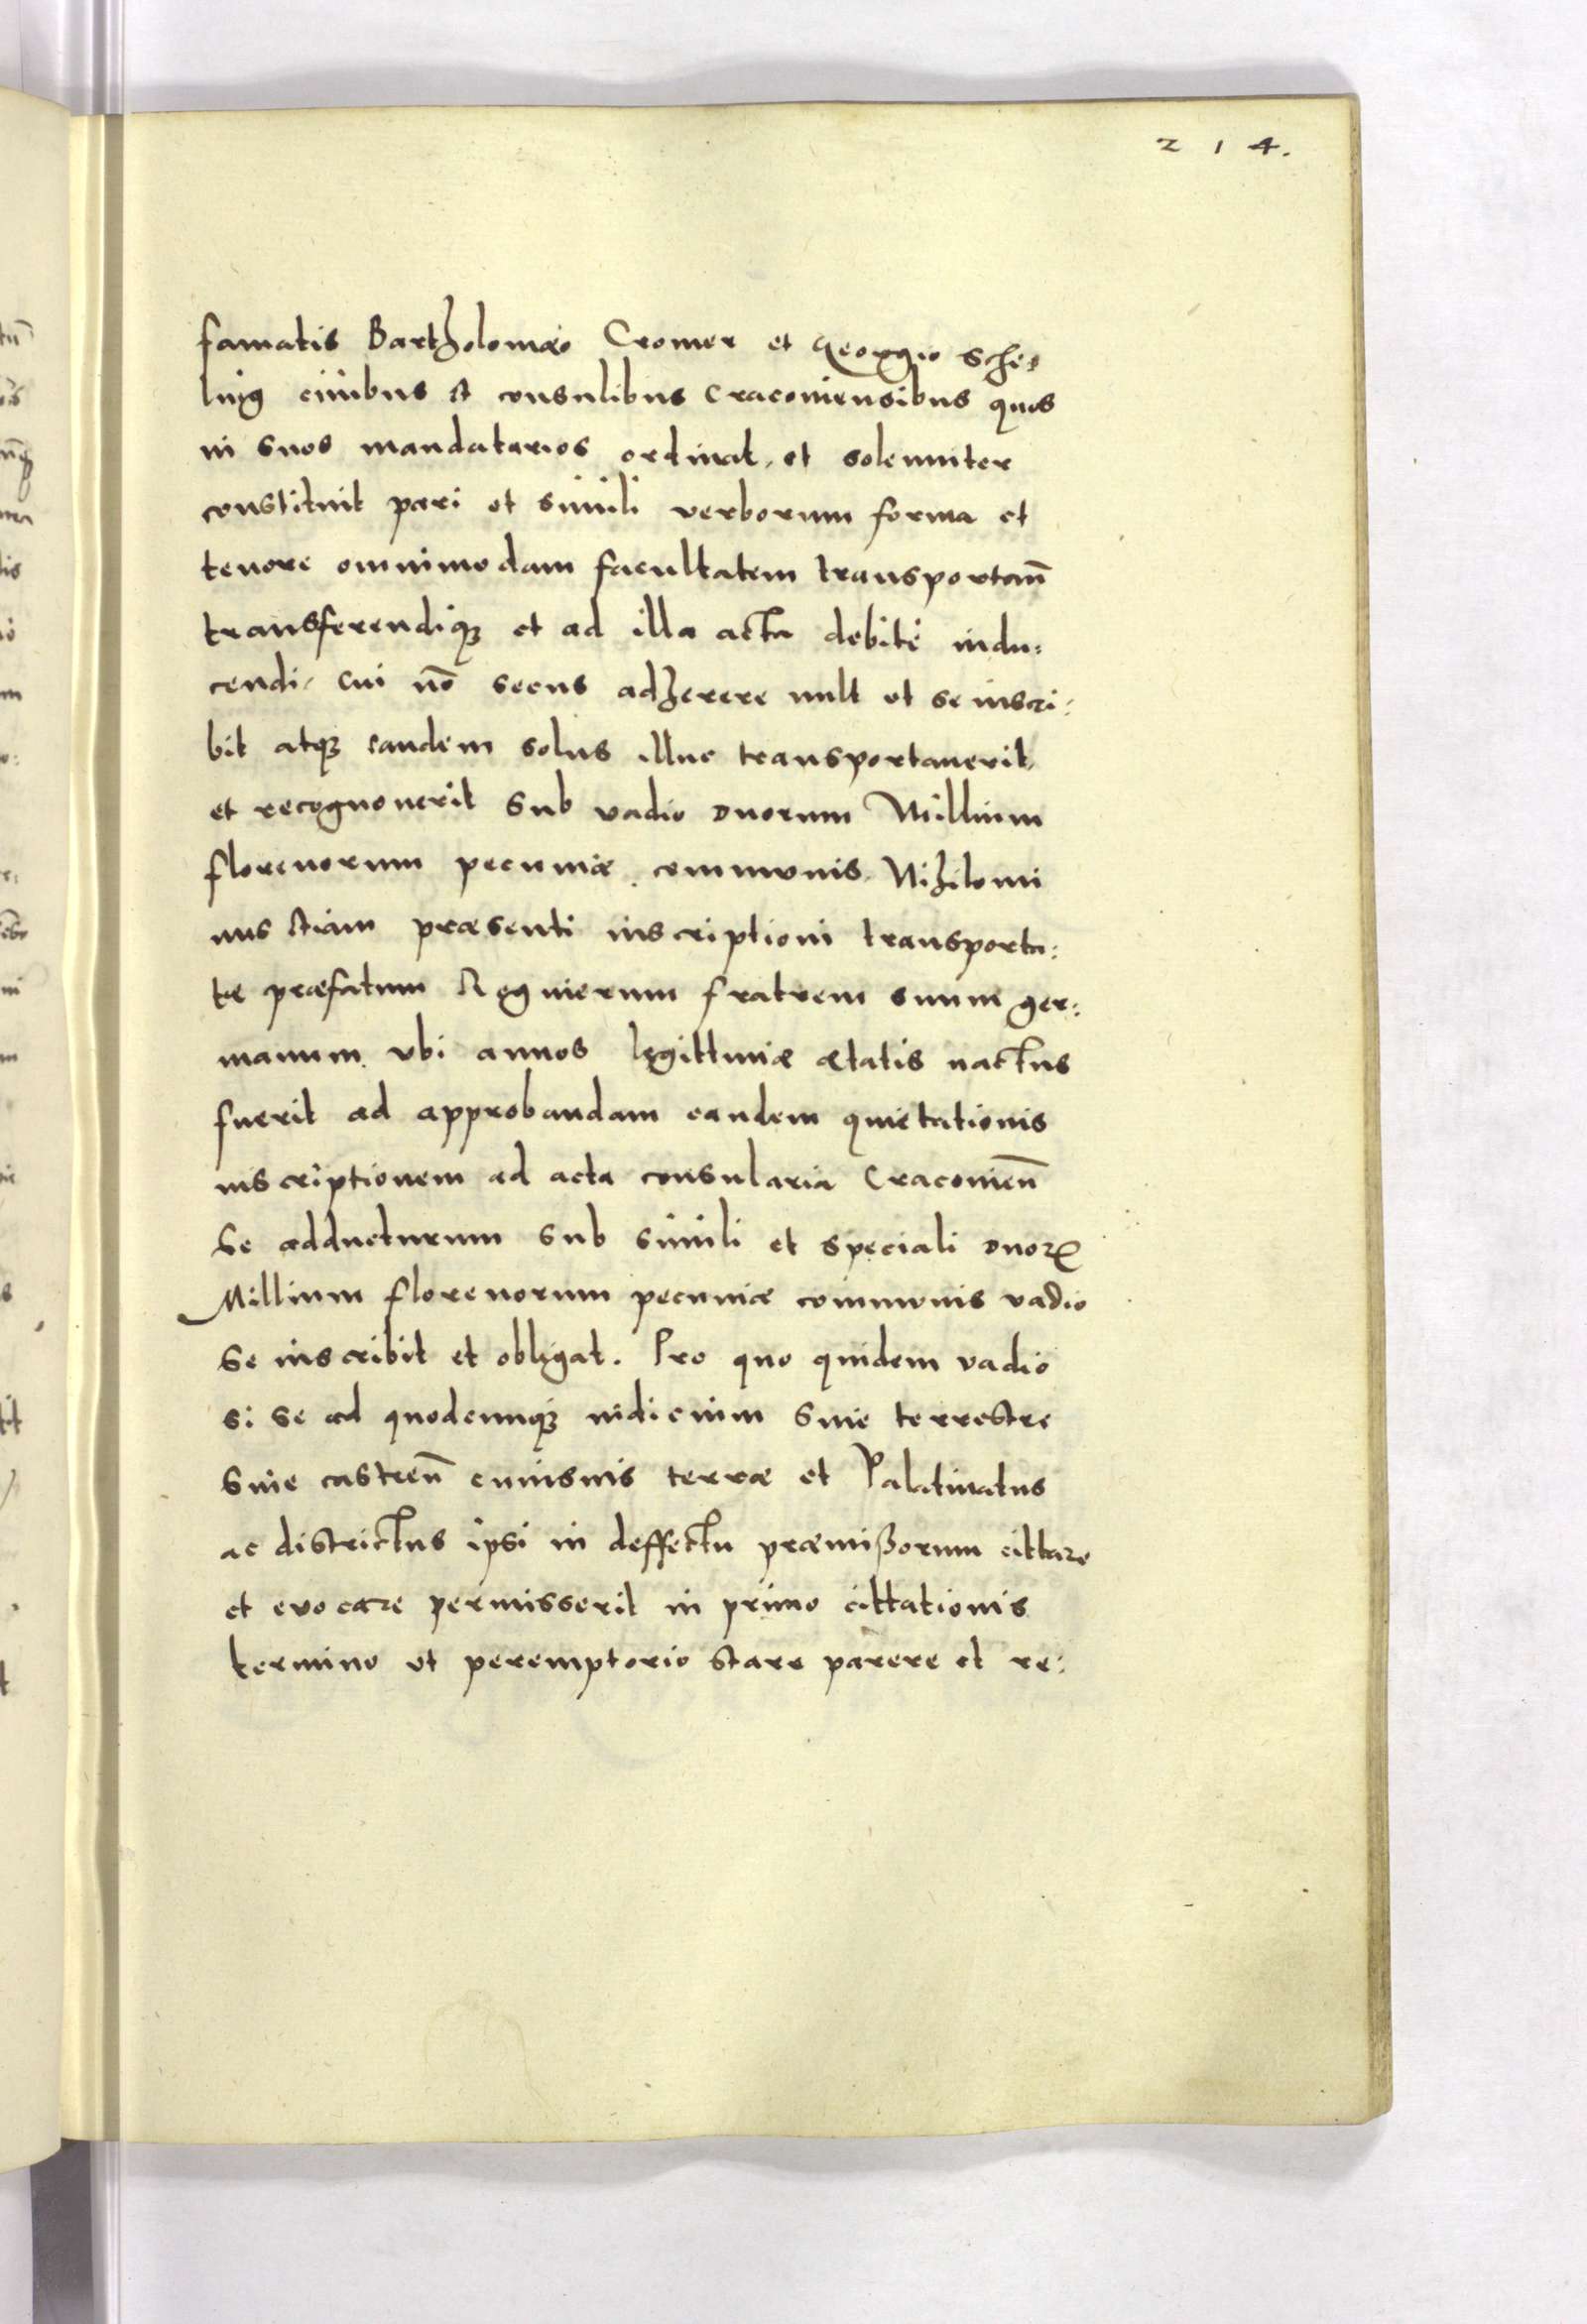 214.
famatis Bartholomæo Cromer et Georgio Sche=
ling ciuibus et consulibus Cracouiensibus quos
in suos mandatarios ordinat, et solemniter
constituit pari et simili verborum forma et
tenore omnimodam facultatem transportan̄
transferendiqȝ et ad illa acta debite indu=
cendi, cui nō secus adherere uult et se inscri=
bit atqȝ eandem solus illuc transportauerit,
et recognouerit sub vadio duorum Millium
florenorum pecuniæ communis. Nihilomi
nus etiam præsenti inscriptioni transporta=
tæ præfatum Regnierum fratrem suum ger=
manum vbi annos legittimæ ætatis nactus
fuerit ad approbandam eandem quietationis
inscriptionem ad acta consularia Cracouien̄
se adducturum sub simili et speciali duoꝝ
Millium florenorum pecuniæ communis vadio
se inscribit et obligat. Pro quo quidem vadio
si se ad quodcunqȝ iudicium siue terrestre
siue castren̄ cuiusuis terræ et Palatinatus
ac districtus ipsi in deffectu præmißorum cittare
et euocare permisserit in primo cittationis
termino vt peremptorio stare parere et re=